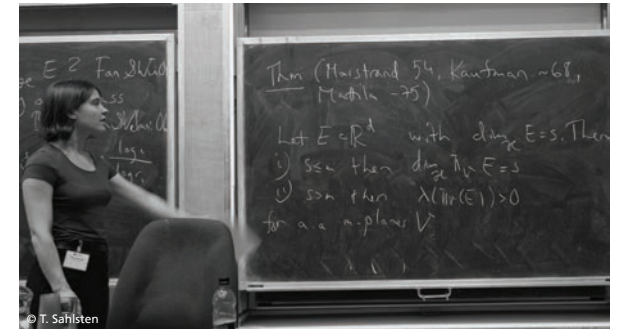 E ? Fan
ss
log
log r
Thm (Marstrand 54, Kaufman ~68,
Mattila ~75)
Let E ⊂ ℝ^d with dim_ℋ E = s. Then
i) s≤n then dim_ℋ π_V E = s
ii) s>n then λ(π_V(E))>0
for a.a n-planes V
© T. Sahlsten